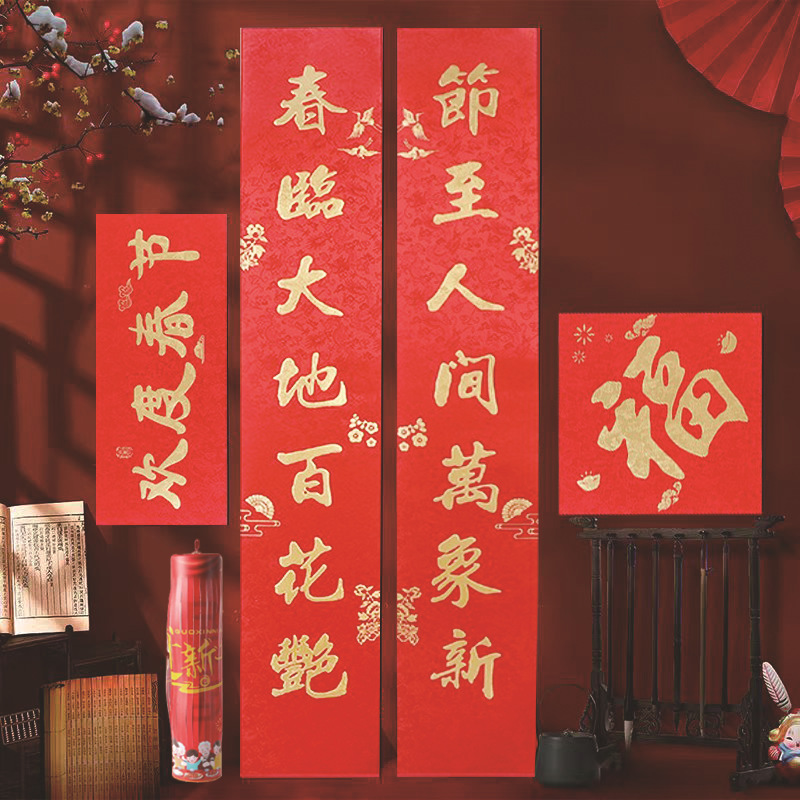 欢度春节
春臨大地百花艷
節至人间萬象新
福
新